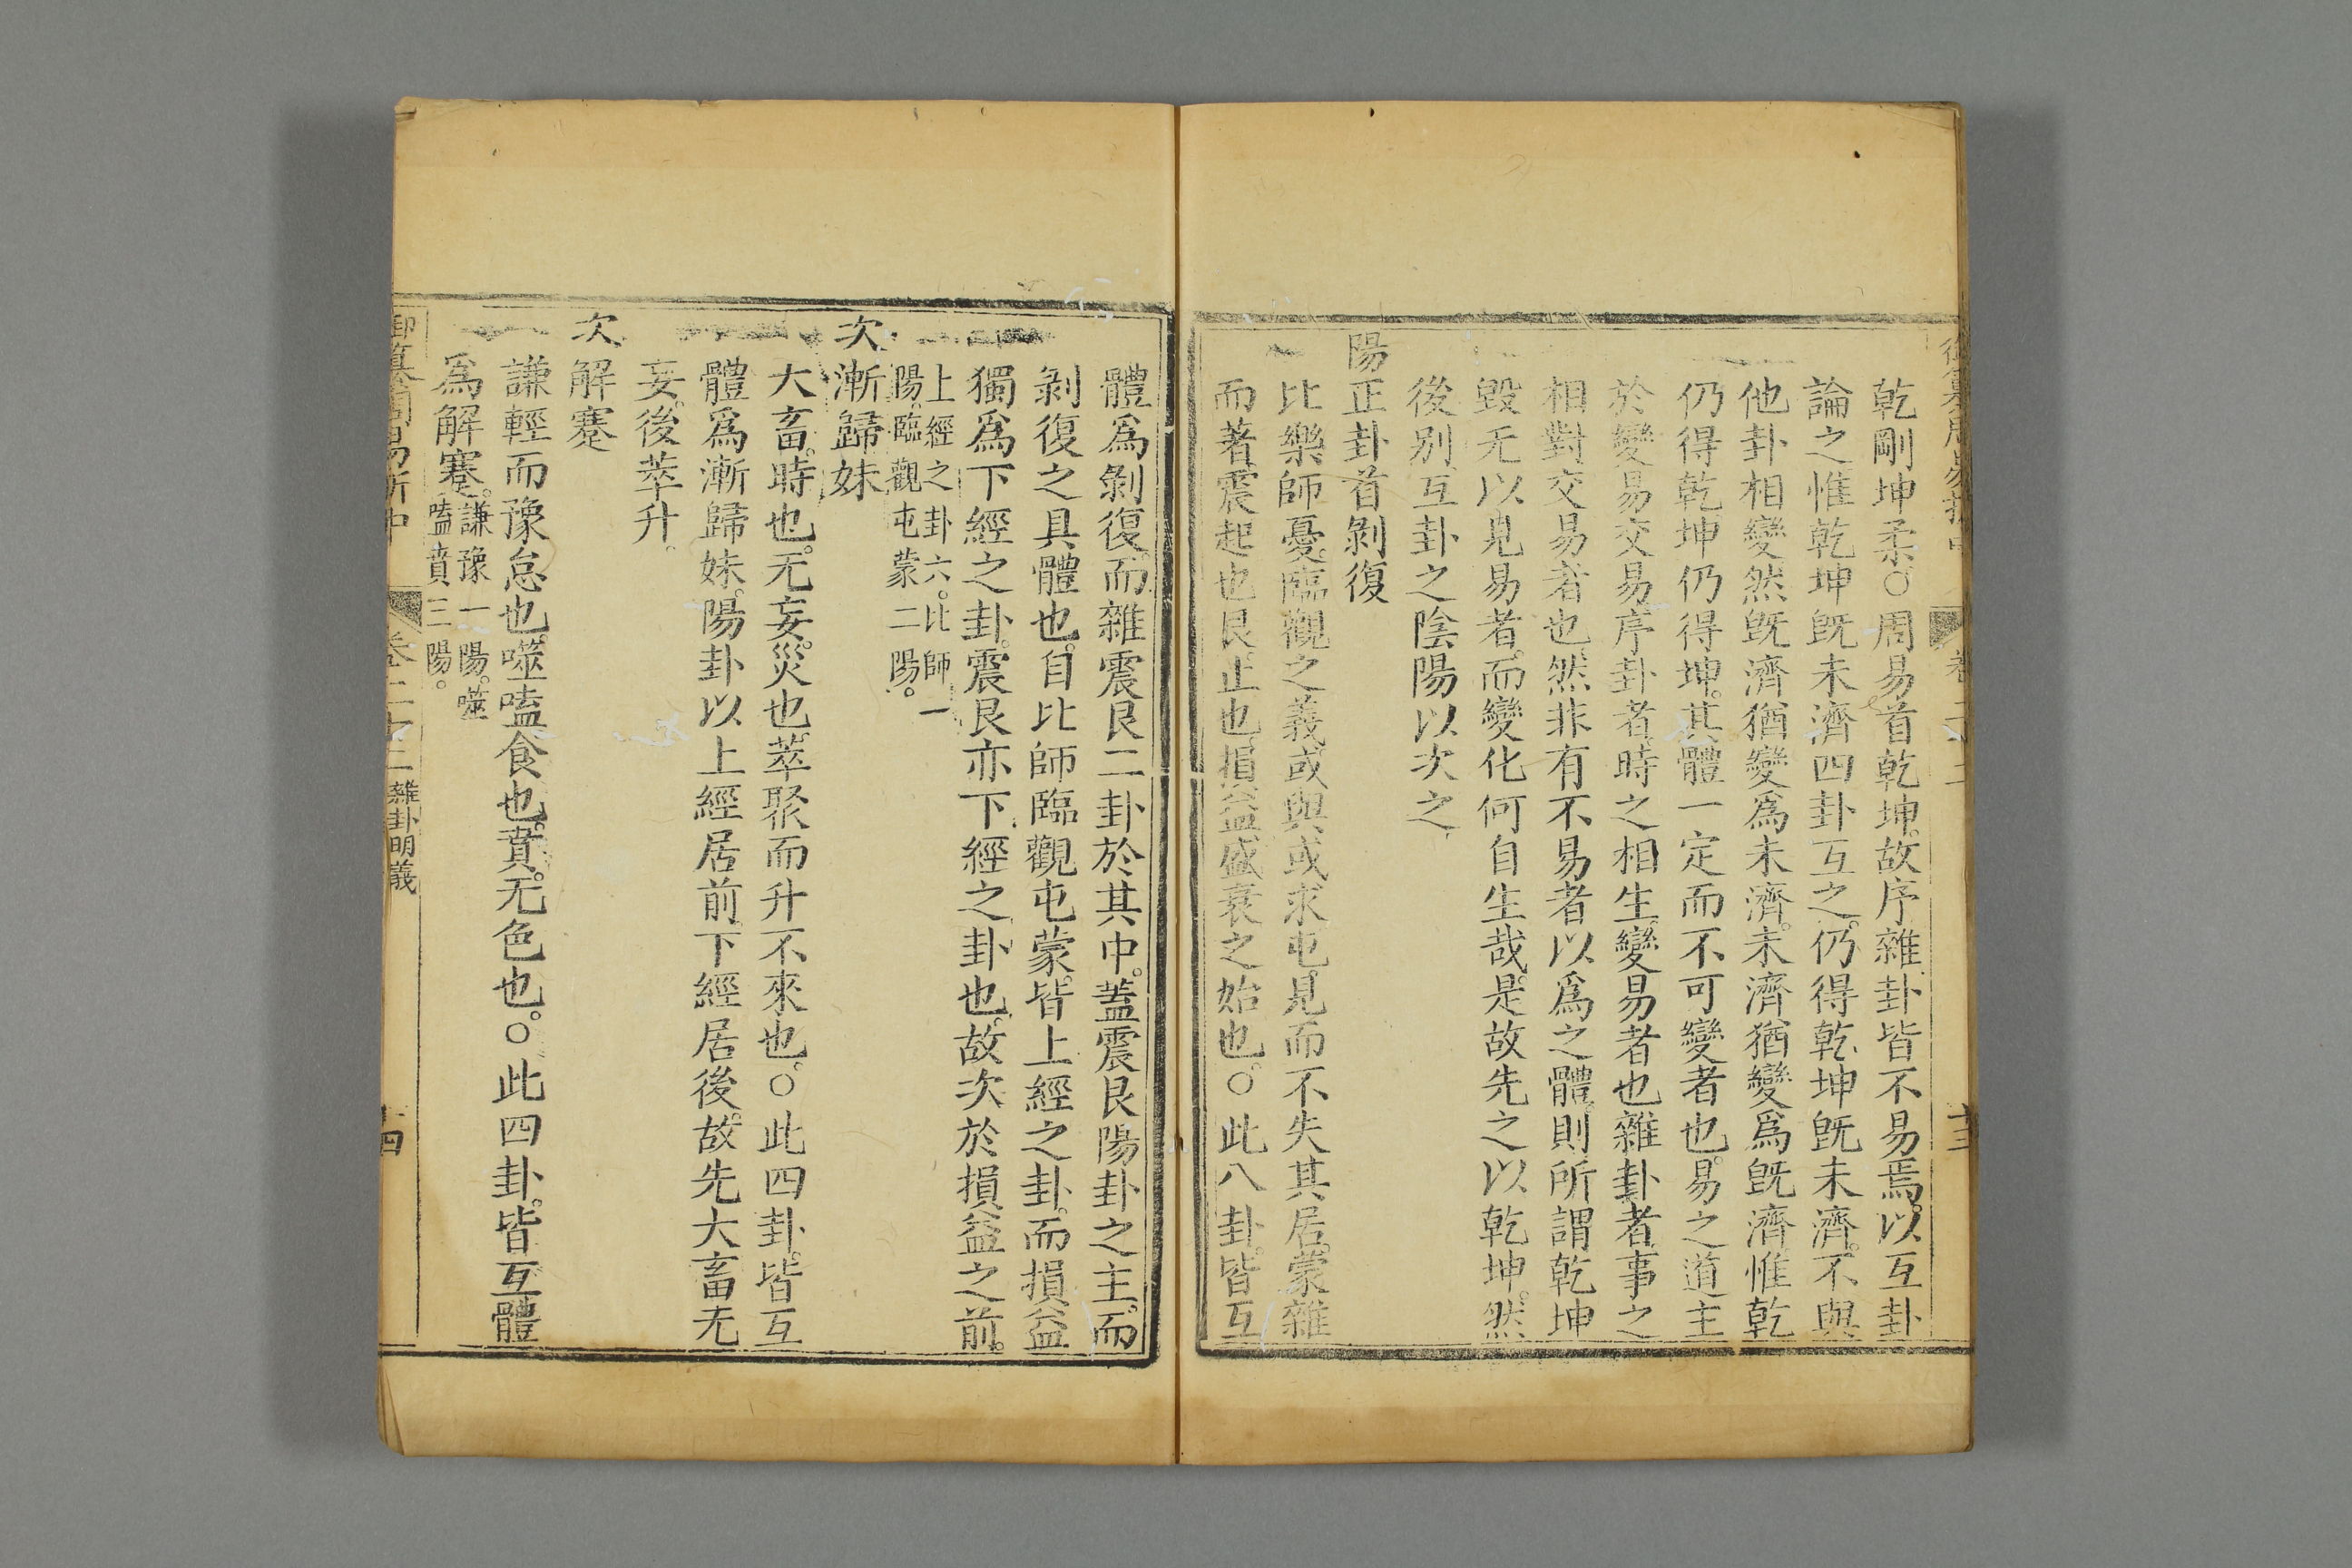 乾剛坤柔。○周易首乾坤。故序雜卦皆不易焉。以互卦
論之。惟乾坤旣未濟四卦互之。仍得乾坤旣未濟。不與
他卦相變。然旣濟猶變爲未濟。未濟猶變爲旣濟。惟乾
仍得乾坤仍得坤。其體一定而不可變者也。易之道主
於變易交易。序卦者。時之相生。變易者也。雜卦者。事之
相對。交易者也。然非有不易者以爲之體。則所謂乾坤
毀无以見易者。而變化何自生哉。是故先之以乾坤。然
後别互卦之陰陽以次之。
陽正卦首剝復
比樂師憂。臨觀之義。或與或求。屯見而不失其居。蒙雜
而著。震起也。艮止也。損益盛衰之始也。○此八卦。皆互
體爲剝復。而雜震艮二卦於其中。蓋震艮陽卦之主。而
剝復之具體也。自比師臨觀屯蒙。皆上經之卦。而損益
獨爲下經之卦。震艮亦下經之卦也。故次於損益之前。
上經之卦六。比師一
陽。臨觀屯蒙二陽。
次漸歸妹
大畜。時也。无妄。災也。萃聚而升不來也。○此四卦。皆互
體爲漸歸妹。陽卦以上經居前。下經居後。故先大畜无
妄。後萃升。
次解蹇
謙輕而豫怠也。噬嗑食也。賁。无色也。○此四卦。皆互體
爲解蹇。謙豫一陽。噬
嗑賁三陽。
御纂周易折中
卷二十二
雜卦明義
十四